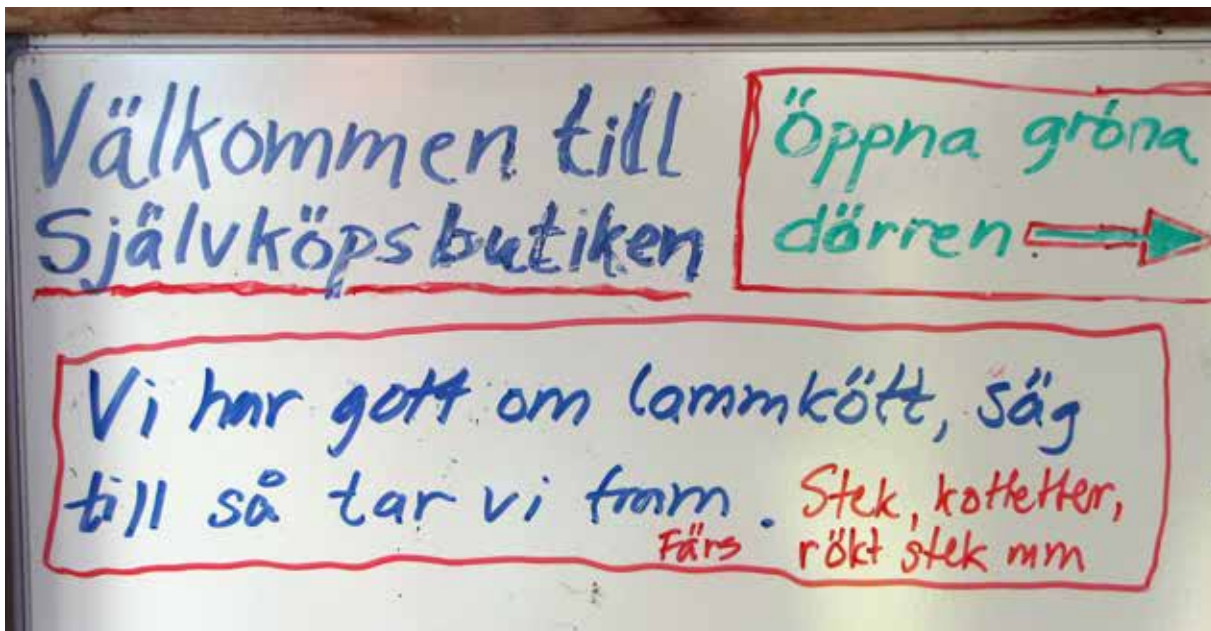 Välkommen till
Självköpsbutiken
Öppna gröna
dörren
Vi har gott om lammkött, säg
till så tar vi fram. Stek, kotletter,
Färs rökt stek mm